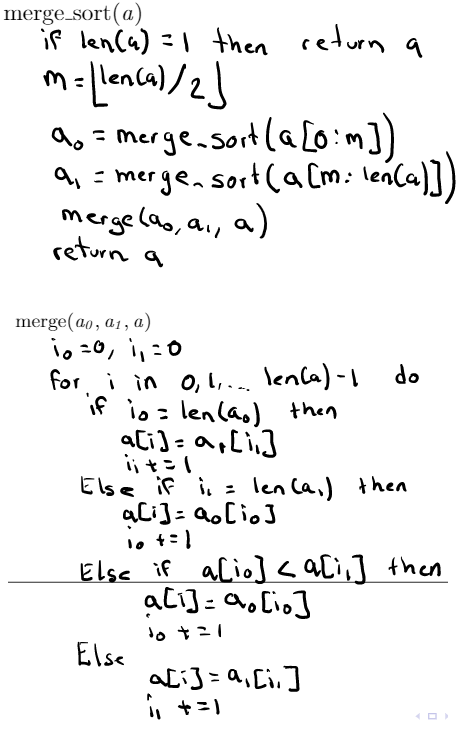 merge_sort(a)
if len(a) = 1 then return a
m = ⌊len(a)/2⌋
a₀ = merge_sort(a[0:m])
a₁ = merge_sort(a[m:len(a)])
merge(a₀, a₁, a)
return a
merge(a₀, a₁, a)
i₀ = 0, i₁ = 0
for i in 0, 1, ... len(a) - 1 do
if i₀ = len(a₀) then
a[i] = a₁[i₁]
i₁ += 1
Else if i₁ = len(a₁) then
a[i] = a₀[i₀]
i₀ += 1
Else if a[i₀] < a[i₁] then
a[i] = a₀[i₀]
i₀ += 1
Else
a[i] = a₁[i₁]
i₁ += 1